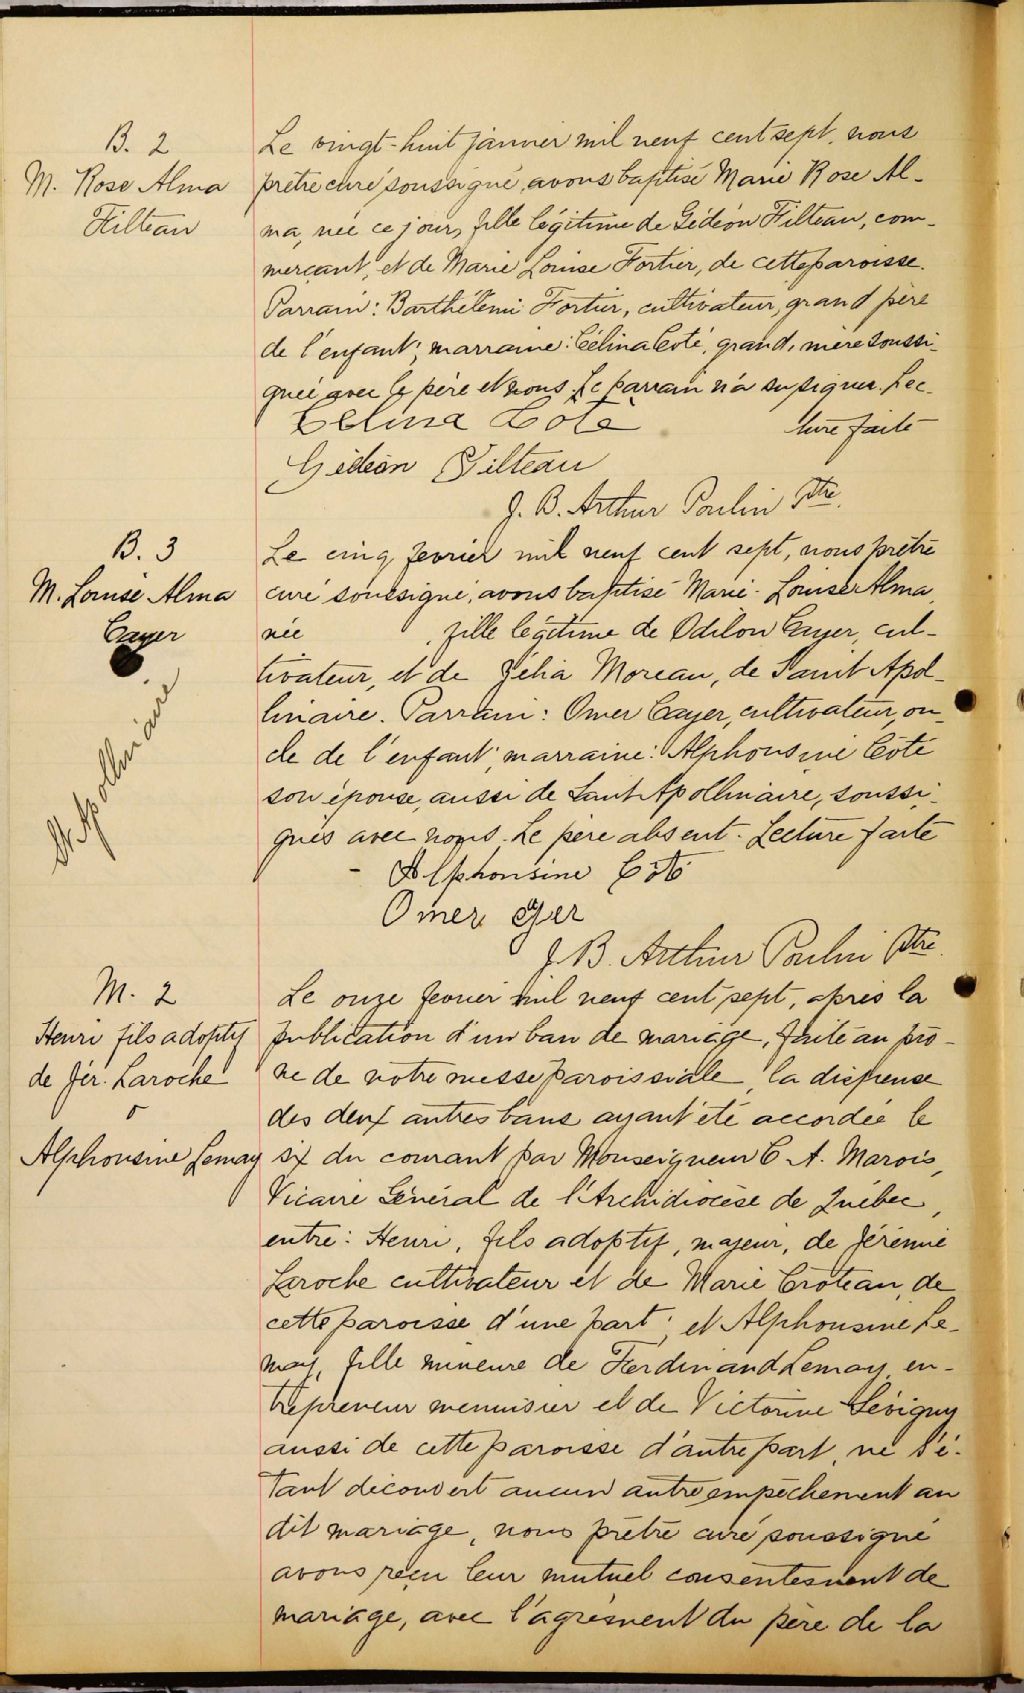 B. 2
M. Rose Alma
Filteau
Le vingt-huit janvier mil neuf cent sept, nous
prêtre curé soussigné, avons baptisé Marie Rose Al-
ma, née ce jour, fille légitime de Gédéon Filteau, com-
merçant, et de Marie Louise Fortier, de cette paroisse.
Parrain: Barthélemi Fortier, cultivateur, grand père
de l'enfant; marraine: Célina Coté, grand'mère soussi-
gnée avec le père et nous. Le parrain n'a su signer. Lec-
ture faite
Célina Coté
Gédéon Filteau
J. B. Arthur Poulin Ptre.
B. 3
M. Louise Alma
Cayer
St Apollinaire
Le cinq fevrier mil neuf cent sept, nous prêtre
curé soussigné, avons baptisé Marie-Louise Alma,
née , fille légitime de Odilon Cayer, cul-
tivateur, et de Zélia Moreau, de Saint Apol-
linaire. Parrain: Omer Cayer, cultivateur, on-
cle de l'enfant; marraine: Alphonsine Côté
son épouse, aussi de Saint Apollinaire, soussi-
gnés avec nous. Le père absent. Lecture faite
Alphonsine Côté
Omer Cayer
J. B. Arthur Poulin Ptre.
M. 2
Henri fils adoptif
de Jér. Laroche
&
Alphonsine Lemay
Le onze fevrier mil neuf cent sept, après la
publication d'un ban de mariage, faite au prô-
ne de notre messe paroissiale, la dispense
des deux autres bans ayant été accordée le
six du courant par Monseigneur C. A. Marois,
Vicaire Général de l'Archidiocèse de Québec,
entre: Henri, fils adoptif, majeur, de Jérémie
Laroche cultivateur et de Marie Croteau, de
cette paroisse d'une part; et Alphonsine Le-
may, fille mineure de Ferdinand Lemay, en-
trepreneur menuisier et de Victorine Sévigny
aussi de cette paroisse d'autre part, ne s'é-
tant découvert aucun autre empêchement au
dit mariage, nous prêtre curé soussigné
avons reçu leur mutuel consentement de
mariage, avec l'agrément du père de la